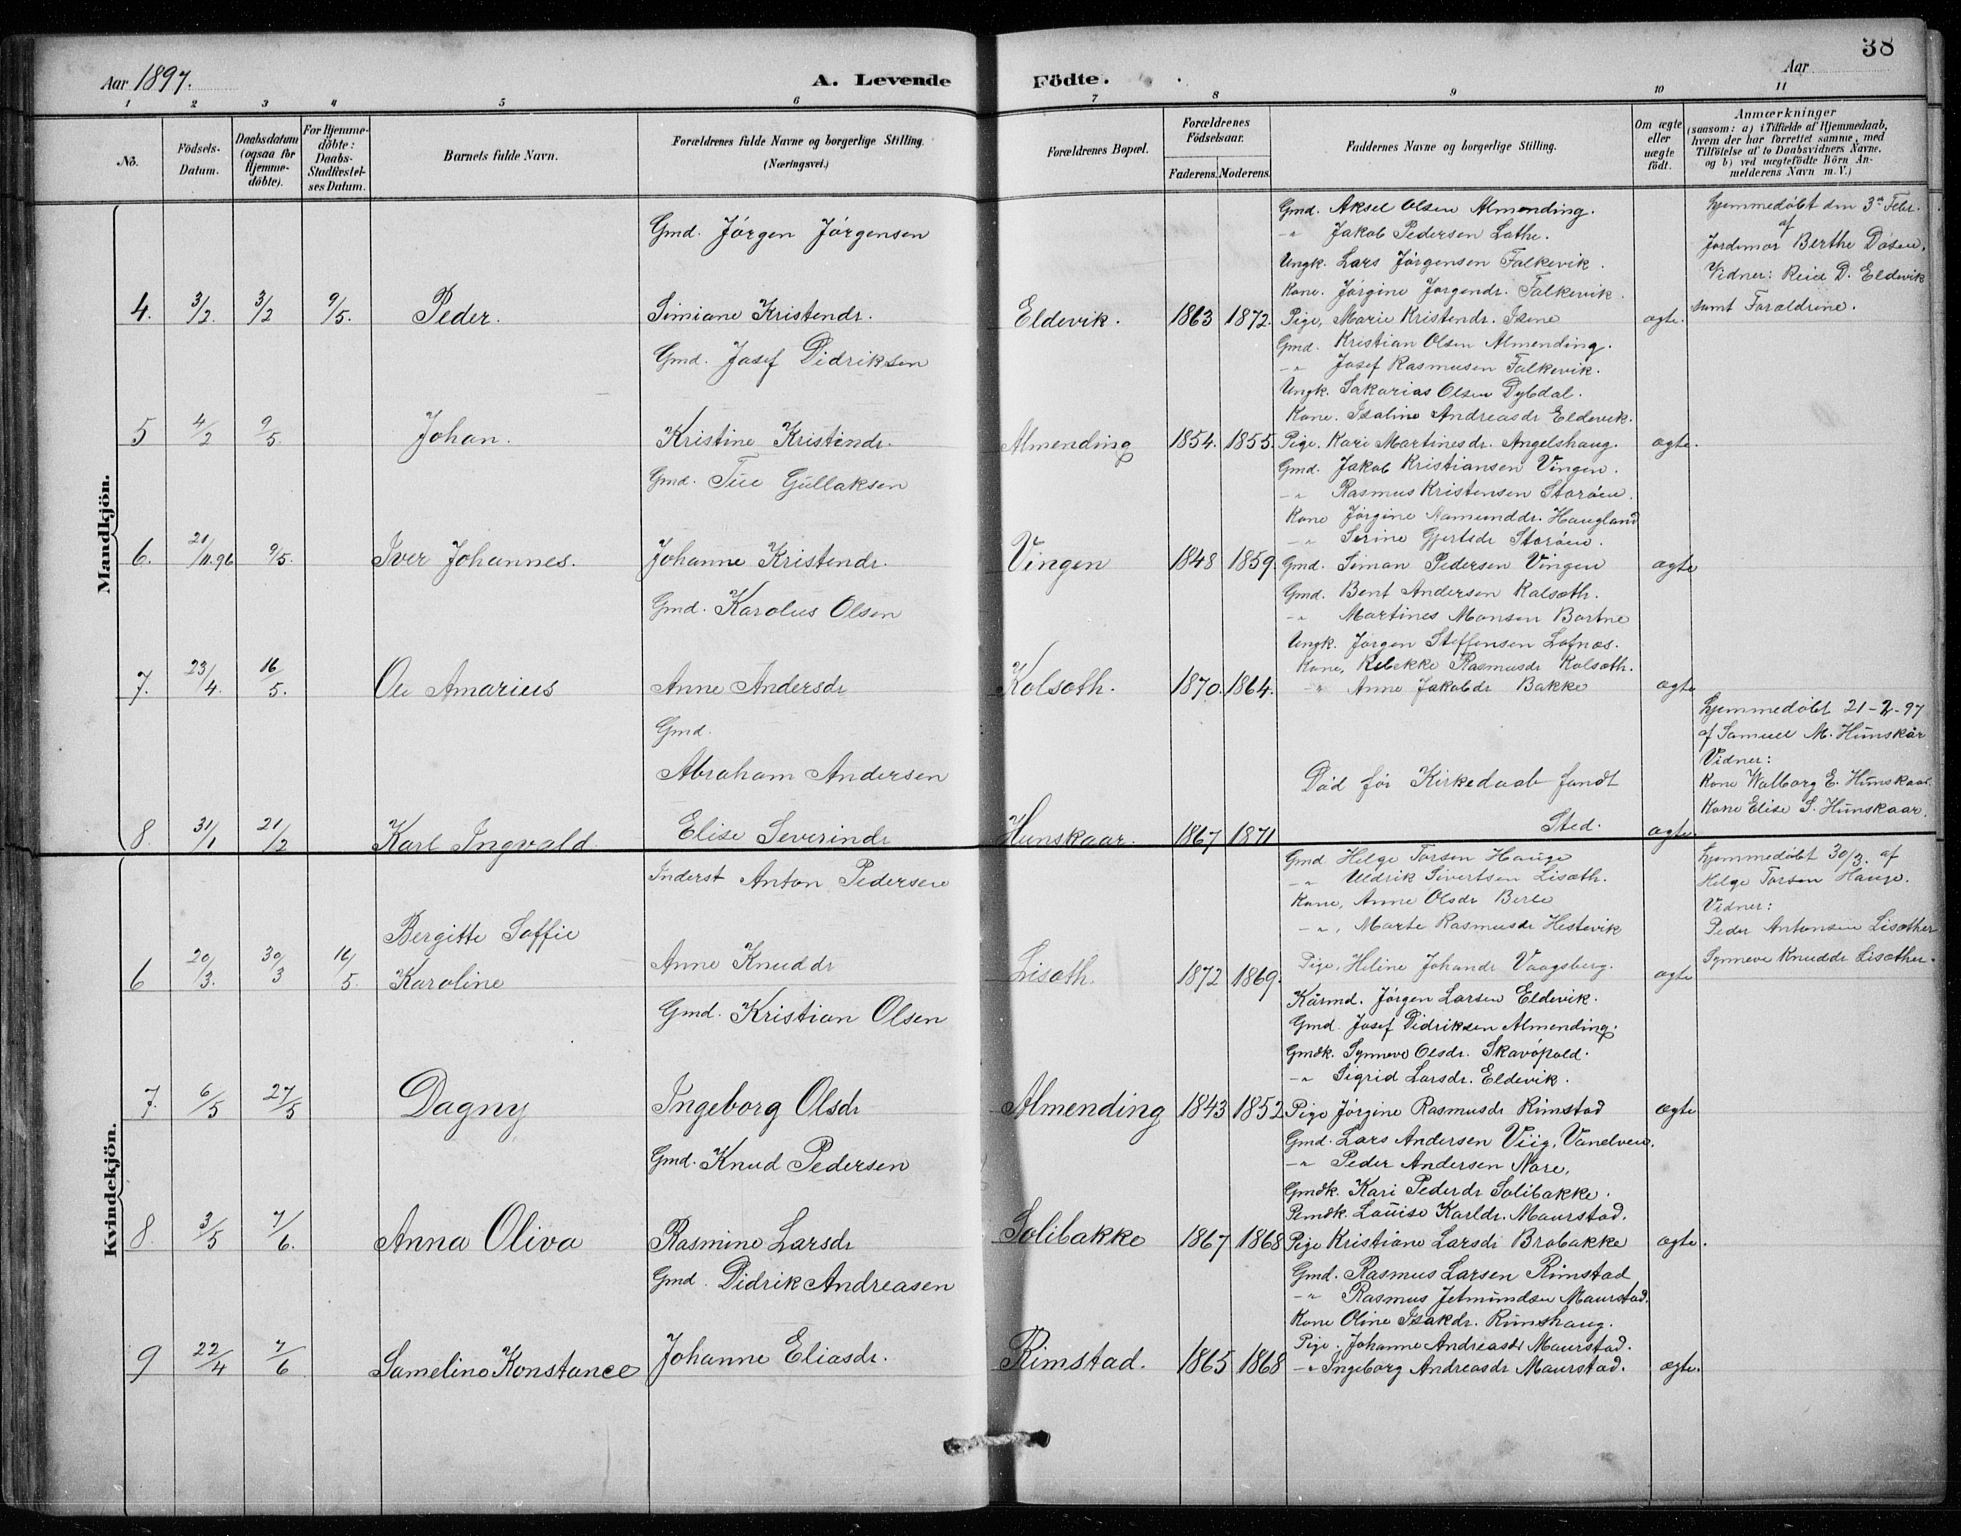 38
Aar 1897.
A. Levende Födte.
Aar
1 2 3 4 5 6 7 8 9 10 11
No.
Födsels-Datum.
Daabsdatum (ogsaa for Hjemme-döbte).
For Hjemme-döbte: Daabs-Stadfæstel-ses Datum.
Barnets fulde Navn.
Forældrenes fulde Navne og borgerlige Stilling.
(Næringsvei.)
Forældrenes Bopæl.
Forældrenes Födselsaar.
Faderens. Moderens.
Faddernes Navne og borgerlige Stilling.
Om ægte eller uægte födt.
Anmærkninger
(saasom: a) i Tilfælde af Hjemmedaab,
hvem der har forrettet samme, med
Tilföielse af to Daabsvidners Navne,
og b) ved uægtefödte Börn An-
melderens Navn m. V.)
Mandkjön.
4. 3/2 3/2 9/5. Peder.
Gmd. Jörgen Jörgensen
Simiane Kristendr.
Eldevik. 1863 1872.
Gmd. Aksel Olsen Almending.
-"- Jakob Pedersen Lothe.
Ungk. Lars Jörgensen Falkevik.
Kone. Jörgine Jörgendr. Falkevik.
Pige, Marie Kristendr. Isene
ægte.
Hjemmedöbt den 3die Febr.
af
Jordemor Berthe Dosen.
Vidner: D. Eldevik
samt Forældrene.
5 4/2 9/5. Johan.
Gmd. Josef Didriksen
Kristine Kristendr.
Almending 1854. 1855.
Gmd. Kristian Olsen Almending.
-"- Josef Rasmusen Falkevik.
Ungk. Sakarias Olsen Dybdal.
Kone. Isaline Andreasdr Eldevik.
Pige. Kari Martinesdr. Angelshaug.
ægte.
6. 21/11.96 9/5. Iver Johannes.
Gmd. Gullaksen
Johanne Kristendr.
Vingen 1848 1859.
Gmd. Jakob Kristiansen Vingen.
-"- Rasmus Kristensen Storöen.
Kone Jörgine Haugland
-"- Serine Gjertsdr Storöen.
Gmd. Simon Pedersen Vingen
ægte
7. 23/4. 16/5. Ole Amarius
Gmd. Karolus Olsen
Anne Andersdr
Kolseth. 1870. 1864.
Gmd. Bent Andersen Kolseth.
-"- Martines Monsen Bortne
Ungk. Jörgen Steffensen Lefnæs.
Kone, Rebekke Rasmusdr Kolseth.
-"- Anne Jakobdr Bakke
ægte
8. 31/1 21/2 Karl Ingvald
Gmd.
Abraham Andersen
Elise Severindr
Hunskaar. 1867 1871
Död för Kirkedaab fandt
Sted.
ægte.
Hjemmedöbt 21-2-97
af Samuel M. Hunskår
Vidner:
Kone Walborg E. Hunskaar.
Kone Elise S. Hunskaar.
Kvindekjön.
6 20/3. 30/3 16/5.
Bergitte Soffie
Karoline
Inderst Anton Pedersen
Anne Knuddr
Liseth. 1872 1869.
Gmd Helge Torsen Hauge
-"- Didrik Sivertsen Liseth.
Kone, Anne Olsdr Berle
-"-, Marte Rasmusdr Hestevik
Pige, Heline Johandr Vaagsberg.
ægte
Hjemmedöbt 30/3. af
Helge Torsen Hauge.
Vidner:
Peder Antonsen Lisether
Synneve Knuddr Lisether.
7. 6/5 27/5 Dagny
Gmd. Kristian Olsen
Ingeborg Olsdr
Almending 1843 1852
Kårmd. Jörgen Larsen Eldevik.
Gmd. Josef Didriksen Almending.
Gmdk. Synneve Olsdr. Skavöpold.
-"- Sigrid Larsdr. Eldevik.
Pige Jörgine Rasmusdr Rimstad
ægte
8. 3/5 7/6. Anna Oliva
Gmd. Knud Pedersen
Rasmine Larsdr
Solibakke 1867 1868
Gmd. Lars Andersen Viig, Vanelven.
-"- Peder Andersen Nore,
Gmdk. Kari Pederdr Solibakke.
Pmdk. Louise Karldr. Maurstad.
Pige Kristiane Larsdr Brobakke
ægte.
9 22/4 7/6 Sameline Konstance
Gmd. Didrik Andreasen
Johanne Eliasdr.
Rimstad. 1865 1868
Gmd. Rasmus Larsen Rimstad
-"- Rasmus Jetmundsen Maurstad.
Kone Oline Isakdr. Rimshaug.
Pige. Johanne Andreasdr Maurstad.
-"- Ingeborg Andreasdr Maurstad.
ægte.